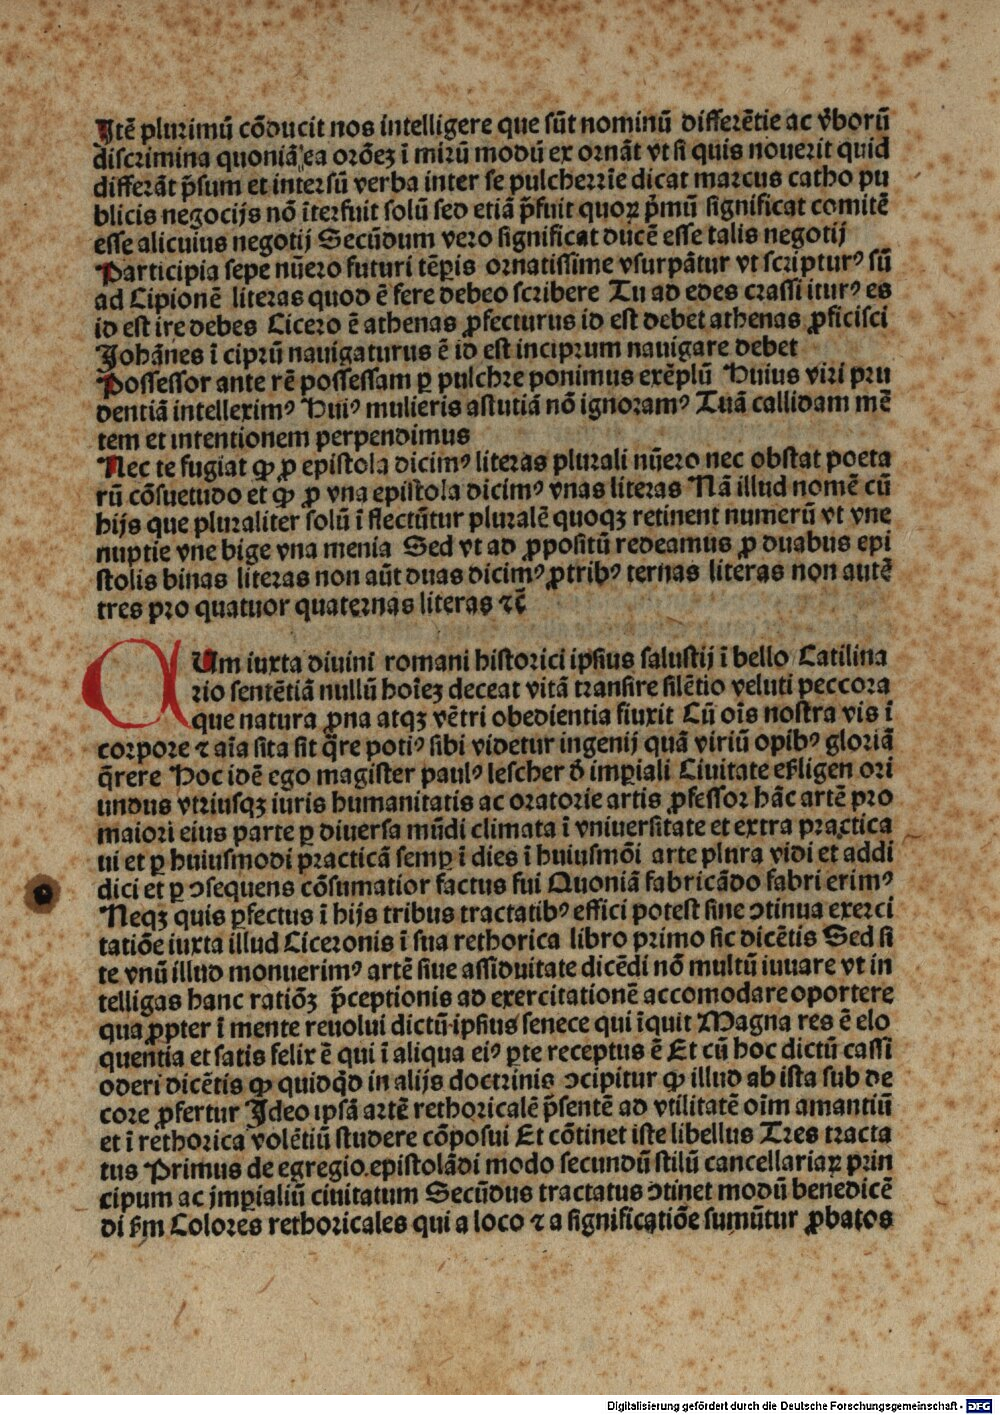 Itē plurimū cōducit nos intelligere que sūt nominū differētie ac v̄borū
discrimina quoniā ea orōeꝫ ī mirū modū ex ornāt vt si quis nouerit quid
differāt p̄sum et intersū verba inter se pulcherrīe dicat marcus catho pu
blicis negocijs nō īterfuit solū sed etiā p̄fuit quoꝝ p̄mū significat comitē
esse alicuius negotij Secūdum vero significat ducē esse talis negotij
Participia sepe nūero futuri tēꝑis ornatissime vsurpātur vt scripturꝰ sū
ad Cipionē literas quod ē fere debeo scribere Tu ad edes crassi iturꝰ es
id est ire debes Cicero ē athenas ꝓfecturus id est debet athenas ꝓficisci
Johānes ī ciprū nauigaturus ē id est inciprum nauigare debet
Possessor ante rē possessam ꝑ pulchre ponimus exēplū Huius viri pru
dentiā intelleximꝰ Huiꝰ mulieris astutiā nō ignoramꝰ Tuā callidam mē
tem et intentionem perpendimus
Nec te fugiat ꝙ ꝓ epistola dicimꝰ literas plurali nūero nec obstat poeta
rū cōsuetudo et ꝙ ꝓ vna epistola dicimꝰ vnas literas Nā illud nomē cū
hijs que pluraliter solū ī flectūtur pluralē quoqꝫ retinent numerū vt vne
nuptie vne bige vna menia Sed vt ad ꝓpositū redeamus ꝓ duabus epi
stolis binas literas non aūt duas dicimꝰ ꝓ tribꝰ ternas literas non autē
tres pro quatuor quaternas literas ⁊c̄
CUm iuxta diuini romani historici ipsius salustij ī bello Catilina
rio sentētiā nullū hoīeꝫ deceat vitā transire silētio veluti peccora
que natura ꝓna atqꝫ vētri obedientia fiuxit Cū oīs nostra vis ī
corpore ⁊ aīa sita sit q̄re potiꝰ sibi videtur ingenij quā viriū opibꝰ gloriā
q̄rere Hoc idē ego magister paulꝰ lescher d̄ imꝑiali Ciuitate eſzligen ori
undus vtriusqꝫ iuris humanitatis ac oratorie artis ꝓfessor hāc artē pro
maiori eius parte ꝑ diuersa mūdi climata ī vniuersitate et extra practica
ui et ꝑ huiusmodi practicā semꝑ ī dies ī huiusmōi arte plura vidi et addi
dici et ꝑ ꝯsequens cōsumatior factus fui Quoniā fabricādo fabri erimꝰ
Neqꝫ quis ꝑfectus ī hijs tribus tractatibꝰ effici potest sine ꝯtinua exerci
tatiōe iuxta illud Ciceronis ī sua rethorica libro primo sic dicētis Sed si
te vnū illud monuerimꝰ artē siue assiduitate dicēdi nō multū iuuare vt in
telligas hanc ratiōꝫ p̄ceptionis ad exercitationē accomodare oportere
qua ꝓpter ī mente reuolui dictū ipsius senece qui īquit Magna res ē elo
quentia et satis felix ē qui ī aliqua eiꝰ ꝑte receptus ē Et cū hoc dictū cassi
oderi dicētis ꝙ quidq̄d in alijs doctrinis ꝯcipitur ꝙ illud ab ista sub de
core ꝓfertur Ideo ipsā artē rethoricalē p̄sentē ad vtilitatē oīm amantiū
et ī rethorica volētiū studere cōposui Et cōtinet iste libellus Tres tracta
tus Primus de egregio epistolādi modo secundū stilū cancellariaꝝ prin
cipum ac imꝑialiū ciuitatum Secūdus tractatus ꝯtinet modū benedicē
di s̄m Colores rethoricales qui a loco ⁊ a significatiōe sumūtur ꝓbatos
Digitalisierung gefördert durch die Deutsche Forschungsgemeinschaft - DFG